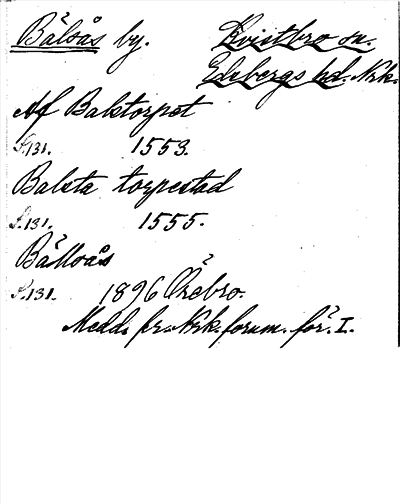 Bålsås by. Kvistbro sn.
Edsbergs hd. Nrk.
Af Balstorpet
S.131. 1553.
Balsta torpestad
S.131. 1555.
Bållsås
S.131. 1896 Örebro.
Medd. fr. Nrk. fornm. för. I.